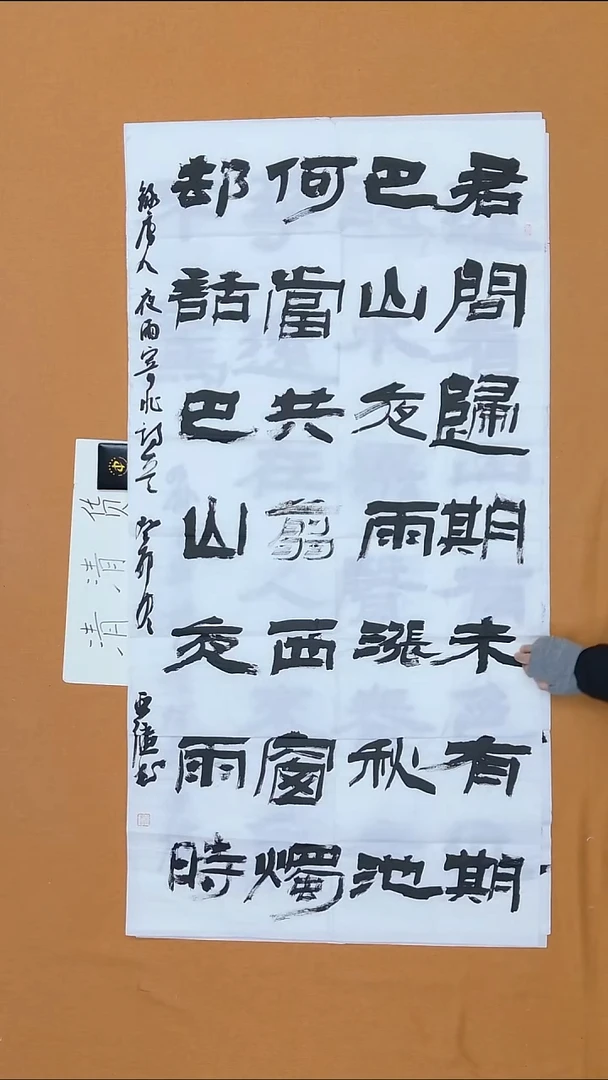 君問歸期未有期
巴山夜雨漲秋池
何當共剪西窗燭
卻話巴山夜雨時
錄唐人夜雨寄北詩 癸卯冬
清清货